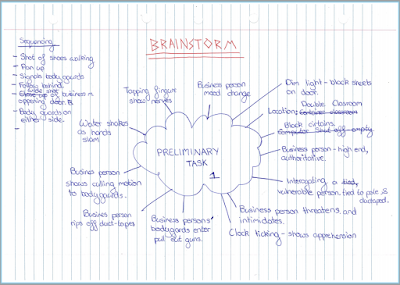 BRAINSTORM
Sequencing
- Shot of shoes walking
- Pan up
- Signals bodyguards
- Follow behind
of business m
opening door.
- Body guards on
either side.
-
Tapping finger
show nerves
Business person
mood change
Dim light - black sheets
on door.
Double Classroom
Location:
Block curtains
Computer Shut off - empty
Business person - high end,
authoritative.
Intercepting a tied,
vulnerable person, tied to pole &
ducktaped.
Business person threatens and
intimidates.
Clock ticking - shows apprehension
Business persons'
bodyguards enter
pull out guns.
Business person
rips off duct-tapes
Business person
shows cutting motion
to bodyguards.
Water shakes
as hands
slam
PRELIMINARY
TASK
1